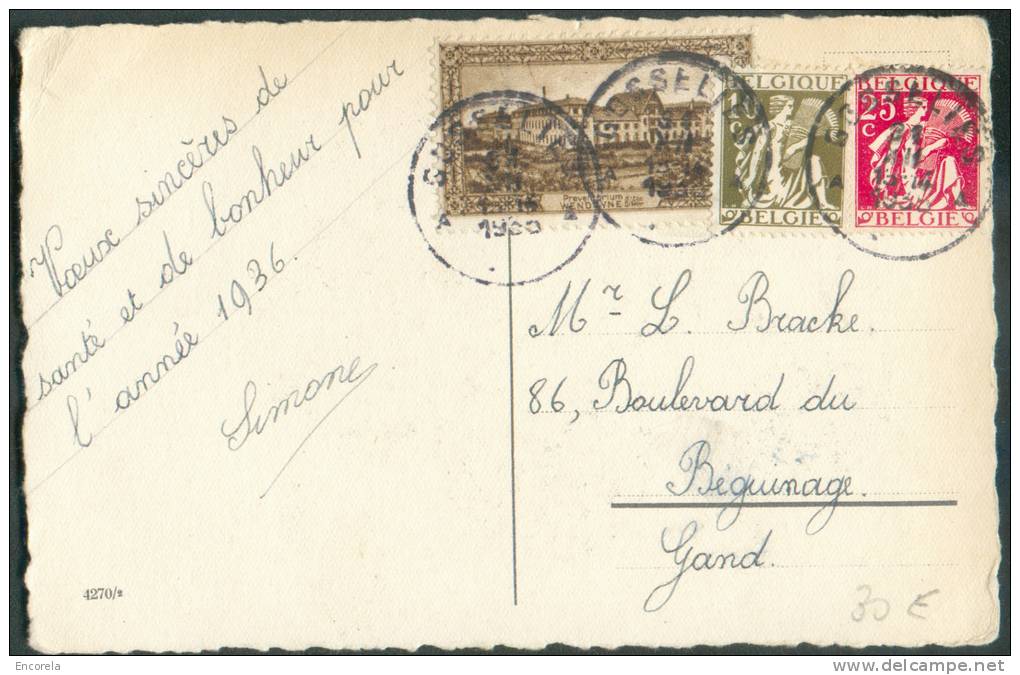 Vœux sincères de
santé et de bonheur pour
l'année 1936.
Simone
4270/2
Preventorium
VENDUYNE
BELGIQUE
BELGIE
BELGIQUE
25
C
BELGIE
GOSSELIES
A
1935
GOSSELIES
GOSSELIES
Mr L. Bracke.
86, Boulevard du
Béguinage.
Gand.
30 €
Encorela
www.delcampe.net